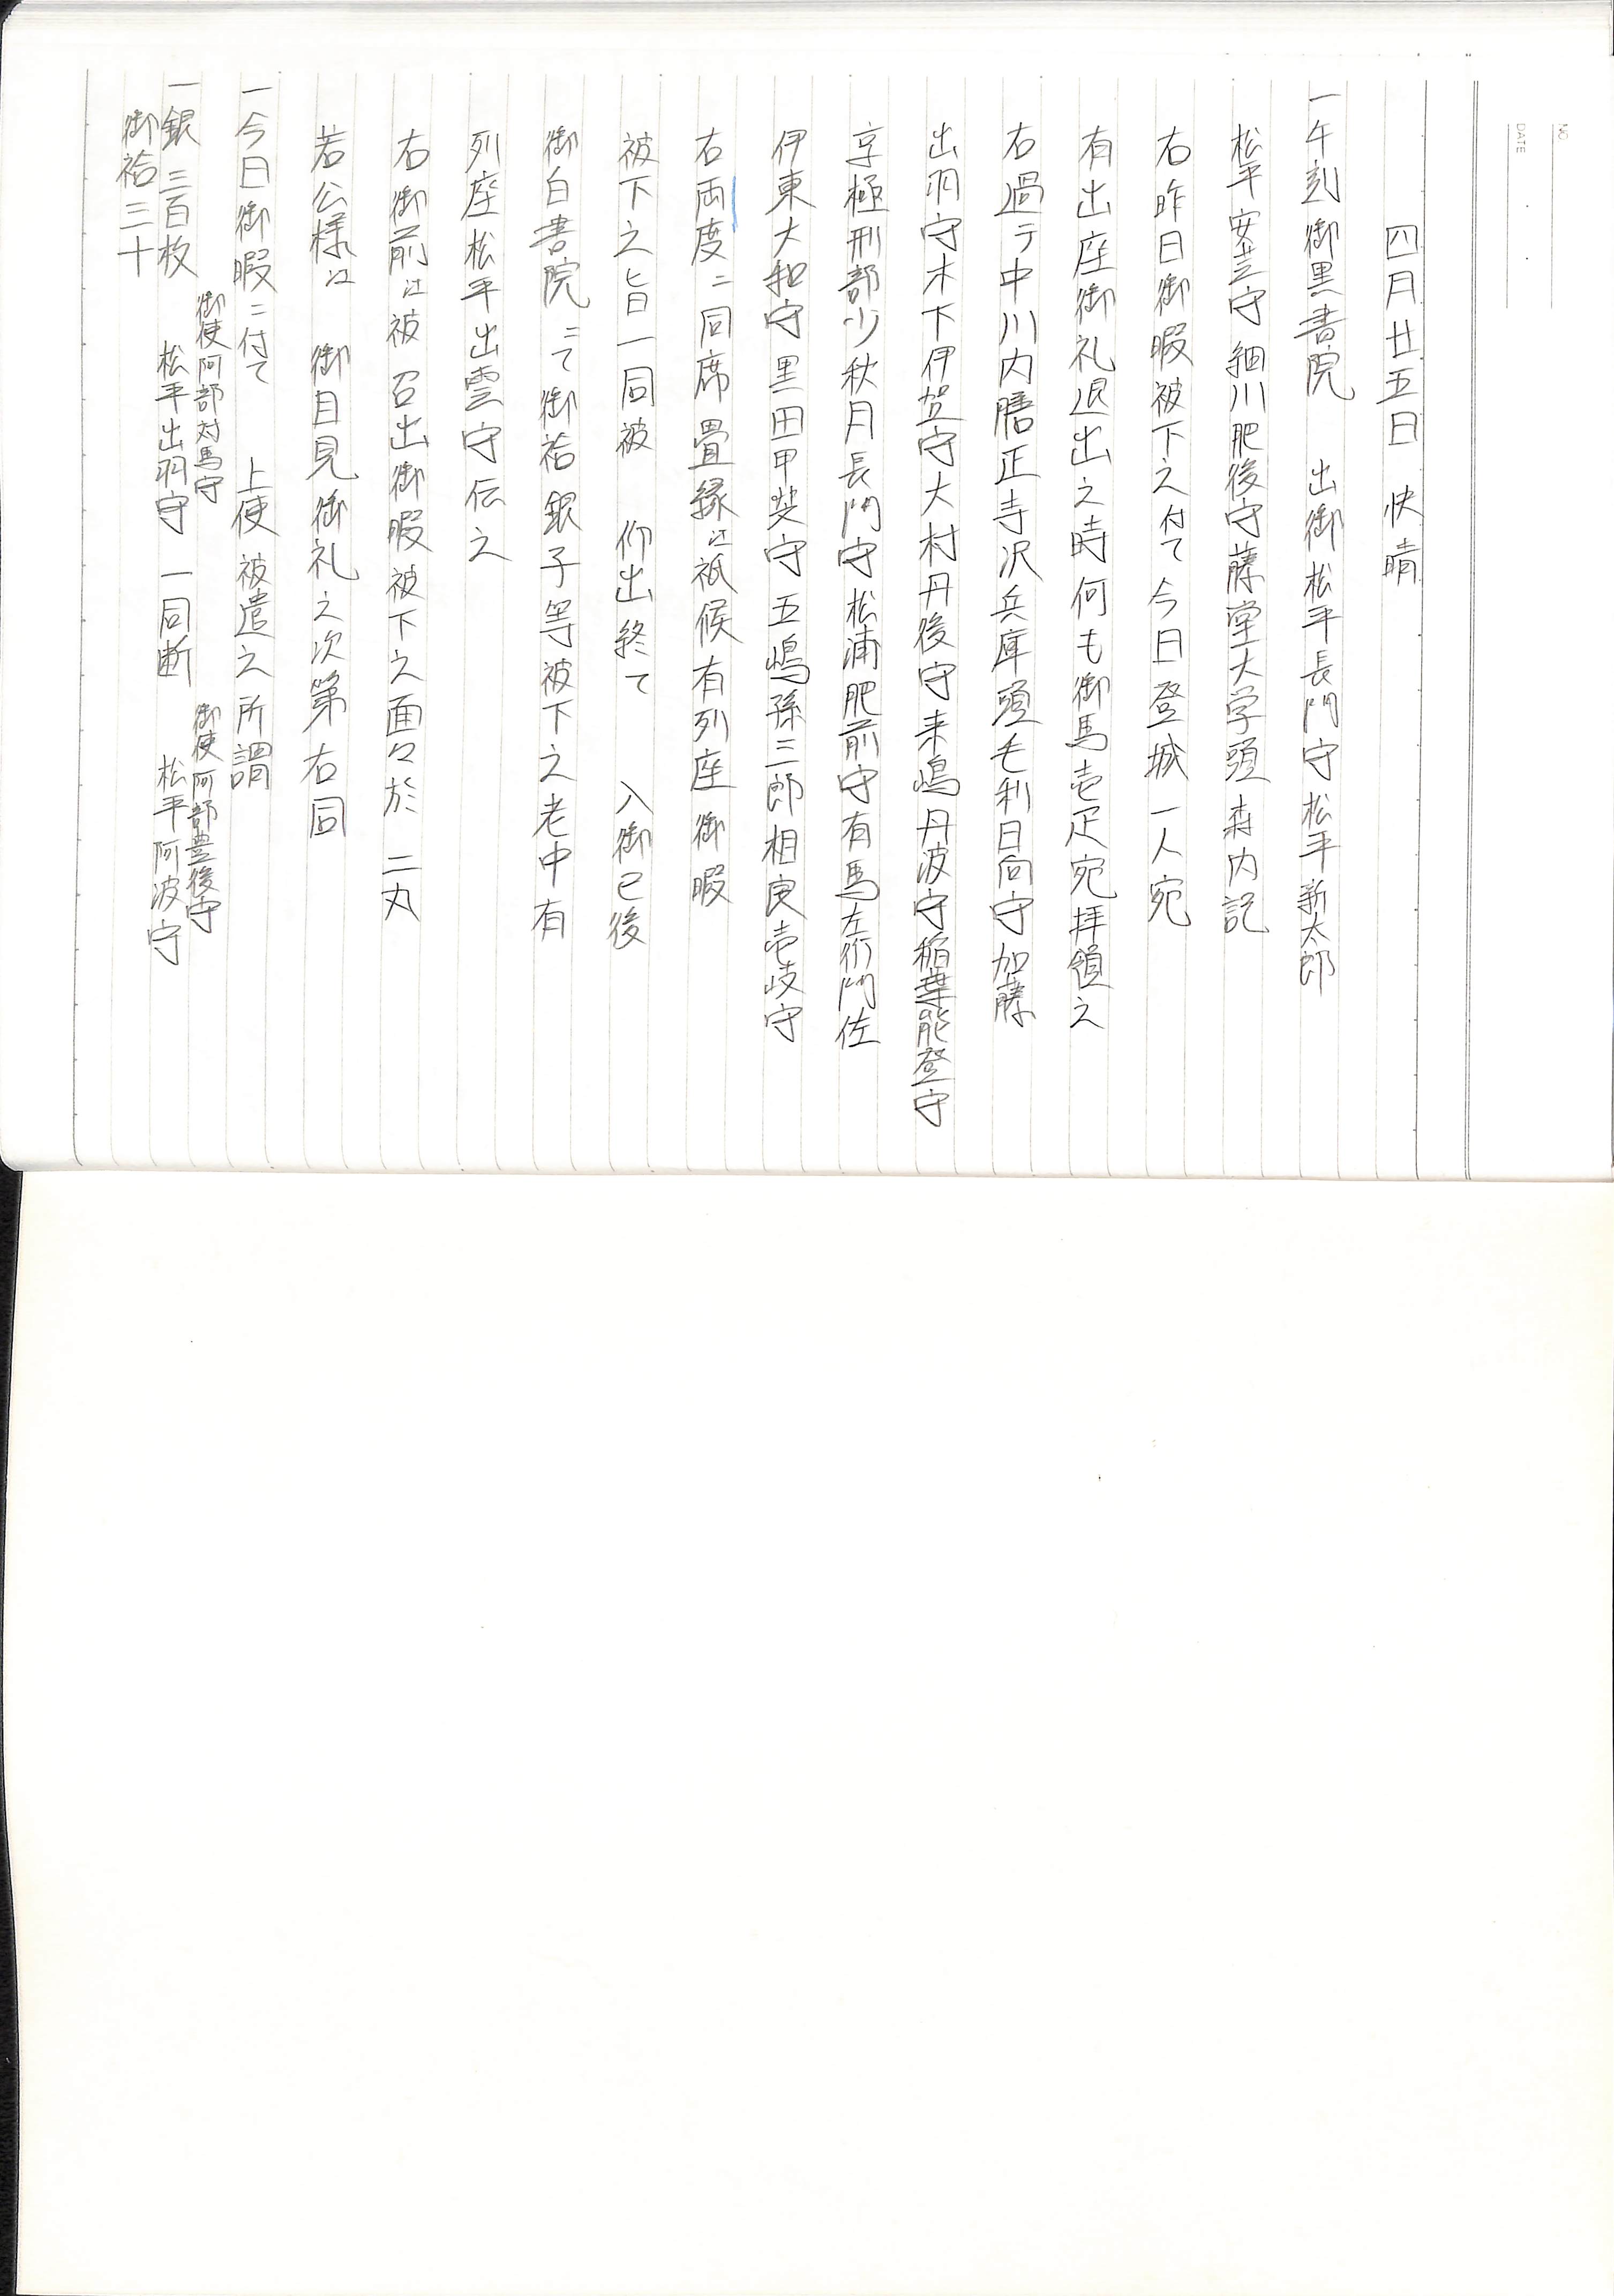 NO
DATE
四月廿五日 快晴
一午刻御黒書院 出御松平長門守松平新太郎
松平安芸守細川肥後守藤堂大学頭森内記
右昨日御暇被下之付て今日登城一人宛
有出座御礼退出之時何も御馬壱疋宛拝領之
右過テ中川内膳正寺沢兵庫頭毛利日向守加藤
出羽守木下伊賀守大村丹後守来嶋丹波守稲葉能登守
京極刑部少秋月長門守松浦肥前守有馬左衛門佐
伊東大和守黒田甲斐守五嶋孫三郎相良壱岐守
右両度ニ同席畳縁江祇候有列座御暇
被下之旨一同被 仰出終て 入御已後
御白書院ニて御袷銀子等被下之老中有
列座松平出雲守伝之
右御前江被 召出御暇被下之面々於 二丸
若公様江 御目見御礼之次第右同
一今日御暇ニ付て 上使被遣之所謂
御使阿部対馬守 御使阿部豊後守
一銀三百枚 松平出羽守 一同断 松平阿波守
御袷三十